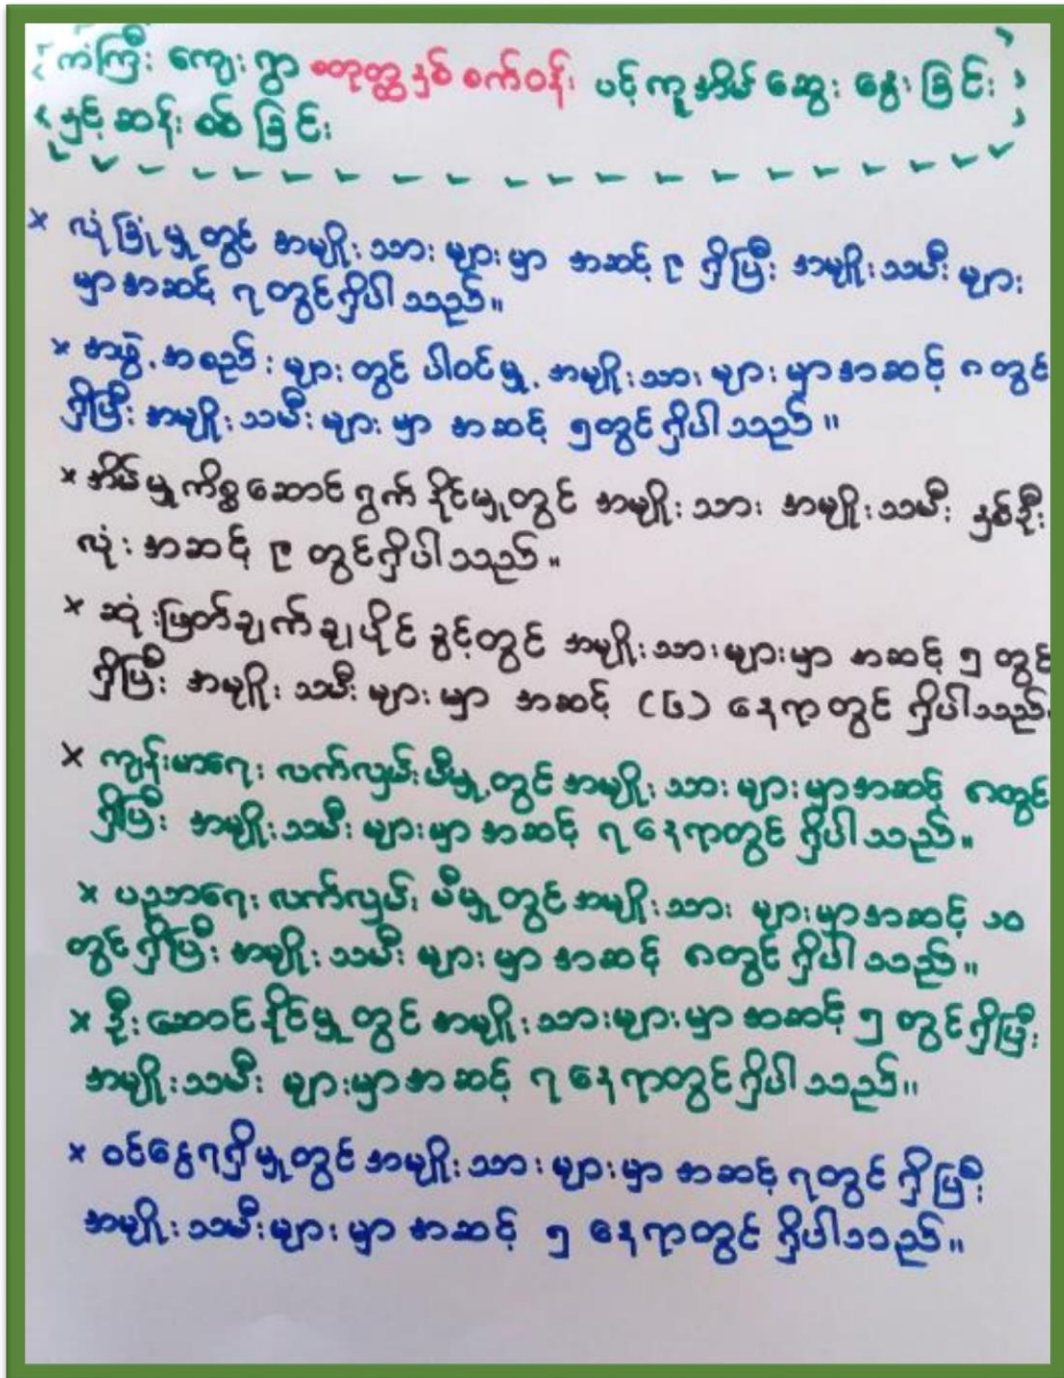 ကံကြီး ကျေးရွာ စတုတ္ထနှစ်စက်ဝန်း ပင့်ကူအိမ်ဆွေးနွေးခြင်း
နှင့်ဆန်းစစ်ခြင်း
× လုံခြုံမှုတွင် အမျိုးသားများမှာ အဆင့် ၉ ရှိပြီး အမျိုးသမီးများ
မှာအဆင့် ၇ တွင်ရှိပါသည်။
× အဖွဲ့အစည်းများတွင် ပါဝင်မှု အမျိုးသားများမှာအဆင့် ၈ တွင်
ရှိပြီး အမျိုးသမီးများမှာ အဆင့် ၅တွင်ရှိပါသည်။
× အိမ်မှုကိစ္စဆောင်ရွက်နိုင်မှုတွင် အမျိုးသား အမျိုးသမီး နှစ်ဦး
လုံး အဆင့် ၉ တွင်ရှိပါသည်။
× ဆုံးဖြတ်ချက်ချပိုင်ခွင့်တွင် အမျိုးသားများမှာ အဆင့် ၅ တွင်
ရှိပြီး အမျိုးသမီးများမှာ အဆင့် (၆) နေရာတွင် ရှိပါသည်
× ကျန်းမာရေး လက်လှမ်းမီမှုတွင် အမျိုးသားများမှာအဆင့် ၈တွင်
ရှိပြီး အမျိုးသမီးများမှာ အဆင့် ၇ နေရာတွင် ရှိပါသည်။
× ပညာရေး လက်လှမ်းမီမှုတွင် အမျိုးသားများမှာအဆင့် ၁၀
တွင်ရှိပြီး အမျိုးသမီးများမှာ အဆင့် ၈တွင် ရှိပါသည်။
× ဦးဆောင်နိုင်မှုတွင် အမျိုးသားများမှာ အဆင့် ၅ တွင်ရှိပြီး
အမျိုးသမီးများမှာအဆင့် ၇ နေရာတွင်ရှိပါသည်။
× ဝင်ငွေရရှိမှုတွင် အမျိုးသားများမှာ အဆင့် ၇တွင် ရှိပြီး
အမျိုးသမီးများမှာ အဆင့် ၅ နေရာတွင် ရှိပါသည်။